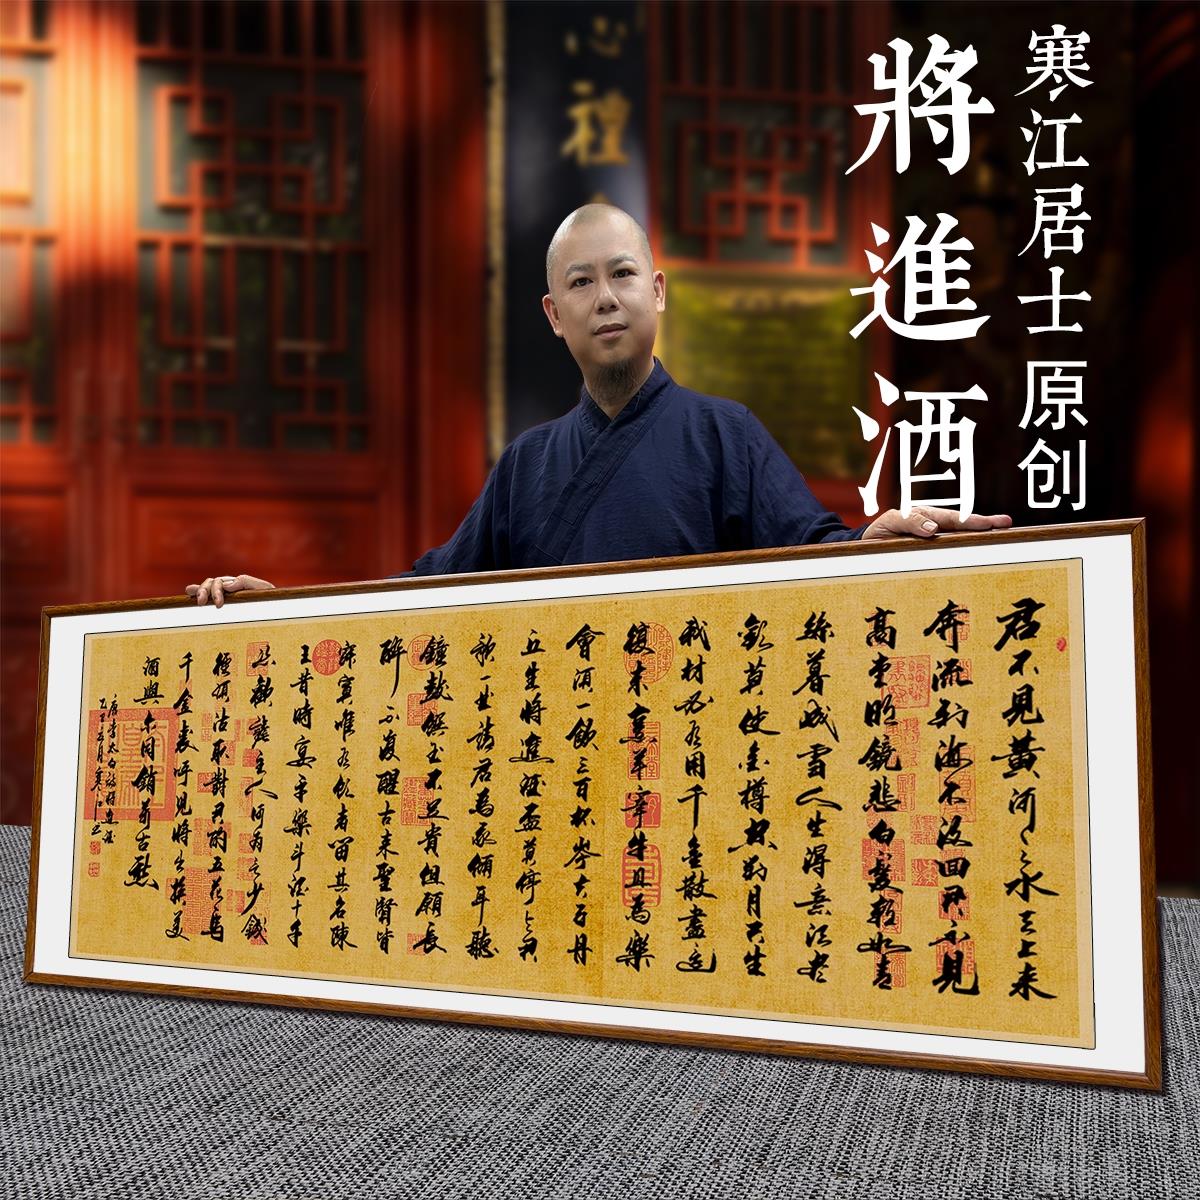 寒江居士 原创
將進酒
心禮
君不見黃河之水天上来
奔流到海不復回君不見
高堂明鏡悲白髮朝如青
絲暮成雪人生得意須盡
歡莫使金樽空對月天生
我材必有用千金散盡還
復来烹羊宰牛且為樂
會須一飲三百杯岑夫子丹
丘生將進酒盃莫停與君
歌一曲請君為我傾耳聽
鐘鼓饌玉不足貴但願長
醉不復醒古来聖賢皆
寂寞唯有飲者留其名陳
王昔時宴平樂斗酒十千
恣歡謔主人何為言少錢
徑須沽取對君酌五花馬
千金裘呼兒將出換美
酒與尔同銷萬古愁
唐李太白詩將進酒
五月寒江